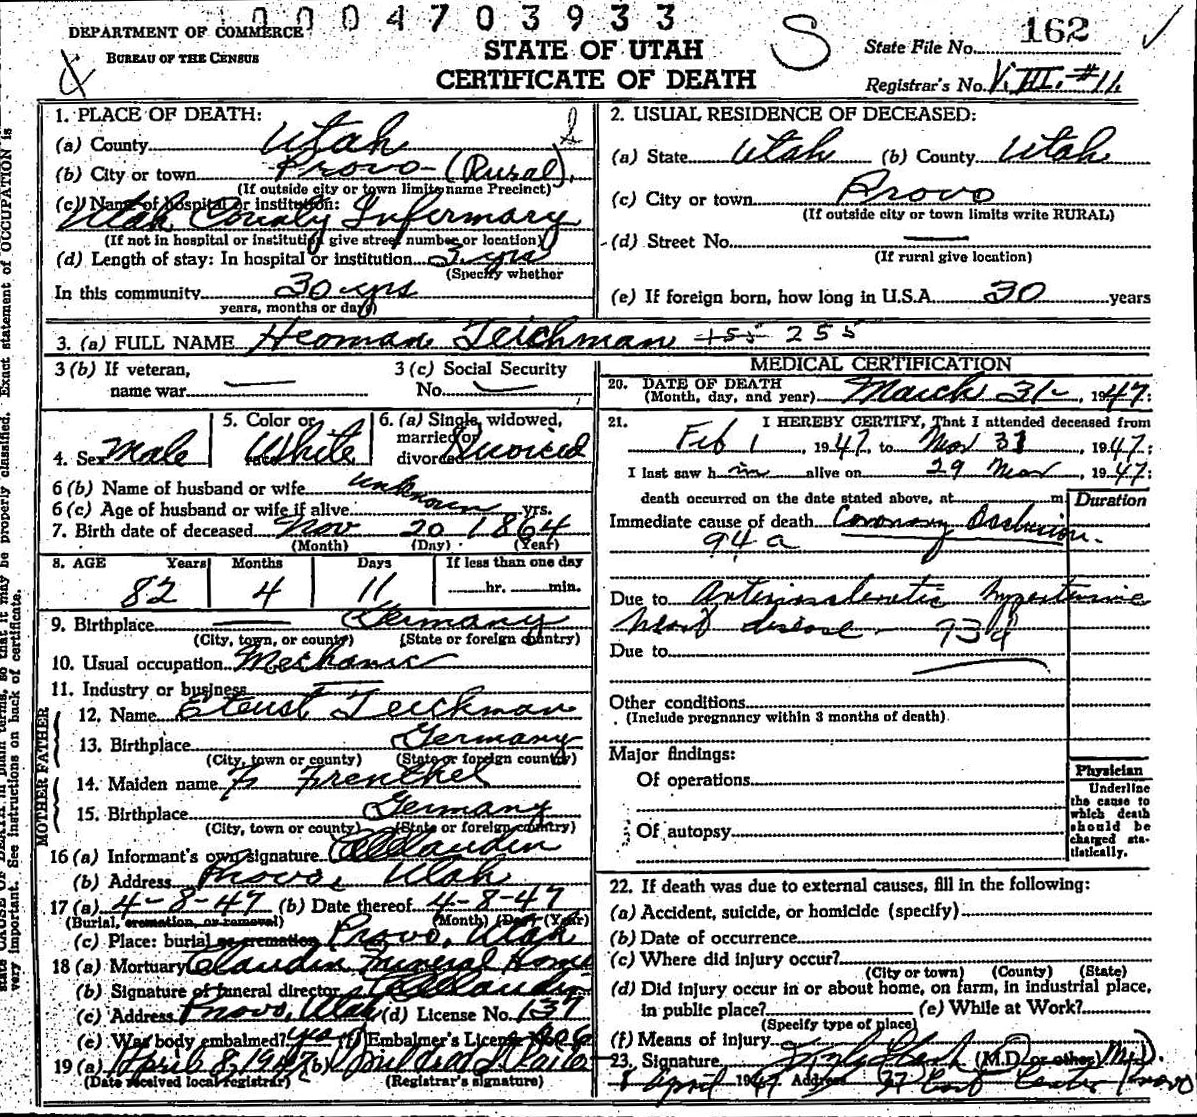 0004703933
DEPARTMENT OF COMMERCE
BUREAU OF THE CENSUS
STATE OF UTAH
CERTIFICATE OF DEATH
S
State File No. 162
Registrar's No. V. III. #11
1. PLACE OF DEATH:
(a) County Utah
(b) City or town Provo - (Rural).
(If outside city or town limits name Precinct)
(c) Name of hospital or institution:
Utah County Infermary
(If not in hospital or institution give street number or location)
(d) Length of stay: In hospital or institution 3 yrs
(Specify whether
In this community 30 yrs
years, months or days)
2. USUAL RESIDENCE OF DECEASED:
(a) State Utah (b) County Utah
(c) City or town Provo
(If outside city or town limits write RURAL)
(d) Street No.
(If rural give location)
(e) If foreign born, how long in U.S.A. 30 years
3. (a) FULL NAME Heoman Teichman 155 255
3 (b) If veteran,
name war
3 (c) Social Security
No.
4. Sex Male
5. Color or
race White
6. (a) Single, widowed,
married or
divorced Divorced
6 (b) Name of husband or wife unknown
6 (c) Age of husband or wife if alive yrs.
7. Birth date of deceased Nov 20 1864
(Month) (Day) (Year)
8. AGE Years Months Days If less than one day
82 4 11 hr. min.
9. Birthplace Germany
(City, town, or county) (State or foreign country)
10. Usual occupation Mechanic
11. Industry or business
FATHER
12. Name Teichman
13. Birthplace Germany
(City, town or county) (State or foreign country)
MOTHER
14. Maiden name Frenchel
15. Birthplace Germany
(City, town or county) (State or foreign country)
16 (a) Informant's own signature Claudin
(b) Address Provo, Utah
17 (a) 4-8-47 (b) Date thereof 4-8-47
(Burial, cremation, or removal) (Month) (Day) (Year)
(c) Place: burial or cremation Provo, Utah
18 (a) Mortuary Claudin Funeral Home
(b) Signature of funeral director Claudin
(c) Address Provo, Utah (d) License No. 137
(e) Was body embalmed? yes (f) Embalmer's License 406
19 (a) April 8, 1947 (b) Mildred
(Date received local registrar) (Registrar's signature)
MEDICAL CERTIFICATION
20. DATE OF DEATH
(Month, day, and year) March 31 - , 1947:
21. I HEREBY CERTIFY, That I attended deceased from
Feb 1, 1947, to Mar 31, 1947:
I last saw him alive on 29 Mar, 1947:
death occurred on the date stated above, at m.
Duration
Immediate cause of death Coronary Occlusion.
94a
Due to Arteriosclerotic hypertensive
heart disease - 93d
Due to
Other conditions
(Include pregnancy within 3 months of death)
Major findings:
Of operations
Of autopsy
Physician
Underline
the cause to
which death
should be
charged sta-
tistically.
22. If death was due to external causes, fill in the following:
(a) Accident, suicide, or homicide (specify)
(b) Date of occurrence
(c) Where did injury occur?
(City or town) (County) (State)
(d) Did injury occur in or about home, on farm, in industrial place,
in public place? (e) While at Work?
(Specify type of place)
(f) Means of injury
23. Signature (M.D. or other) M.D.
8 April 1947 Address 37 East Center Provo
state CAUSE OF DEATH in plain terms, so that it may be properly classified. Exact statement of OCCUPATION is
very important. See instructions on back of certificate.